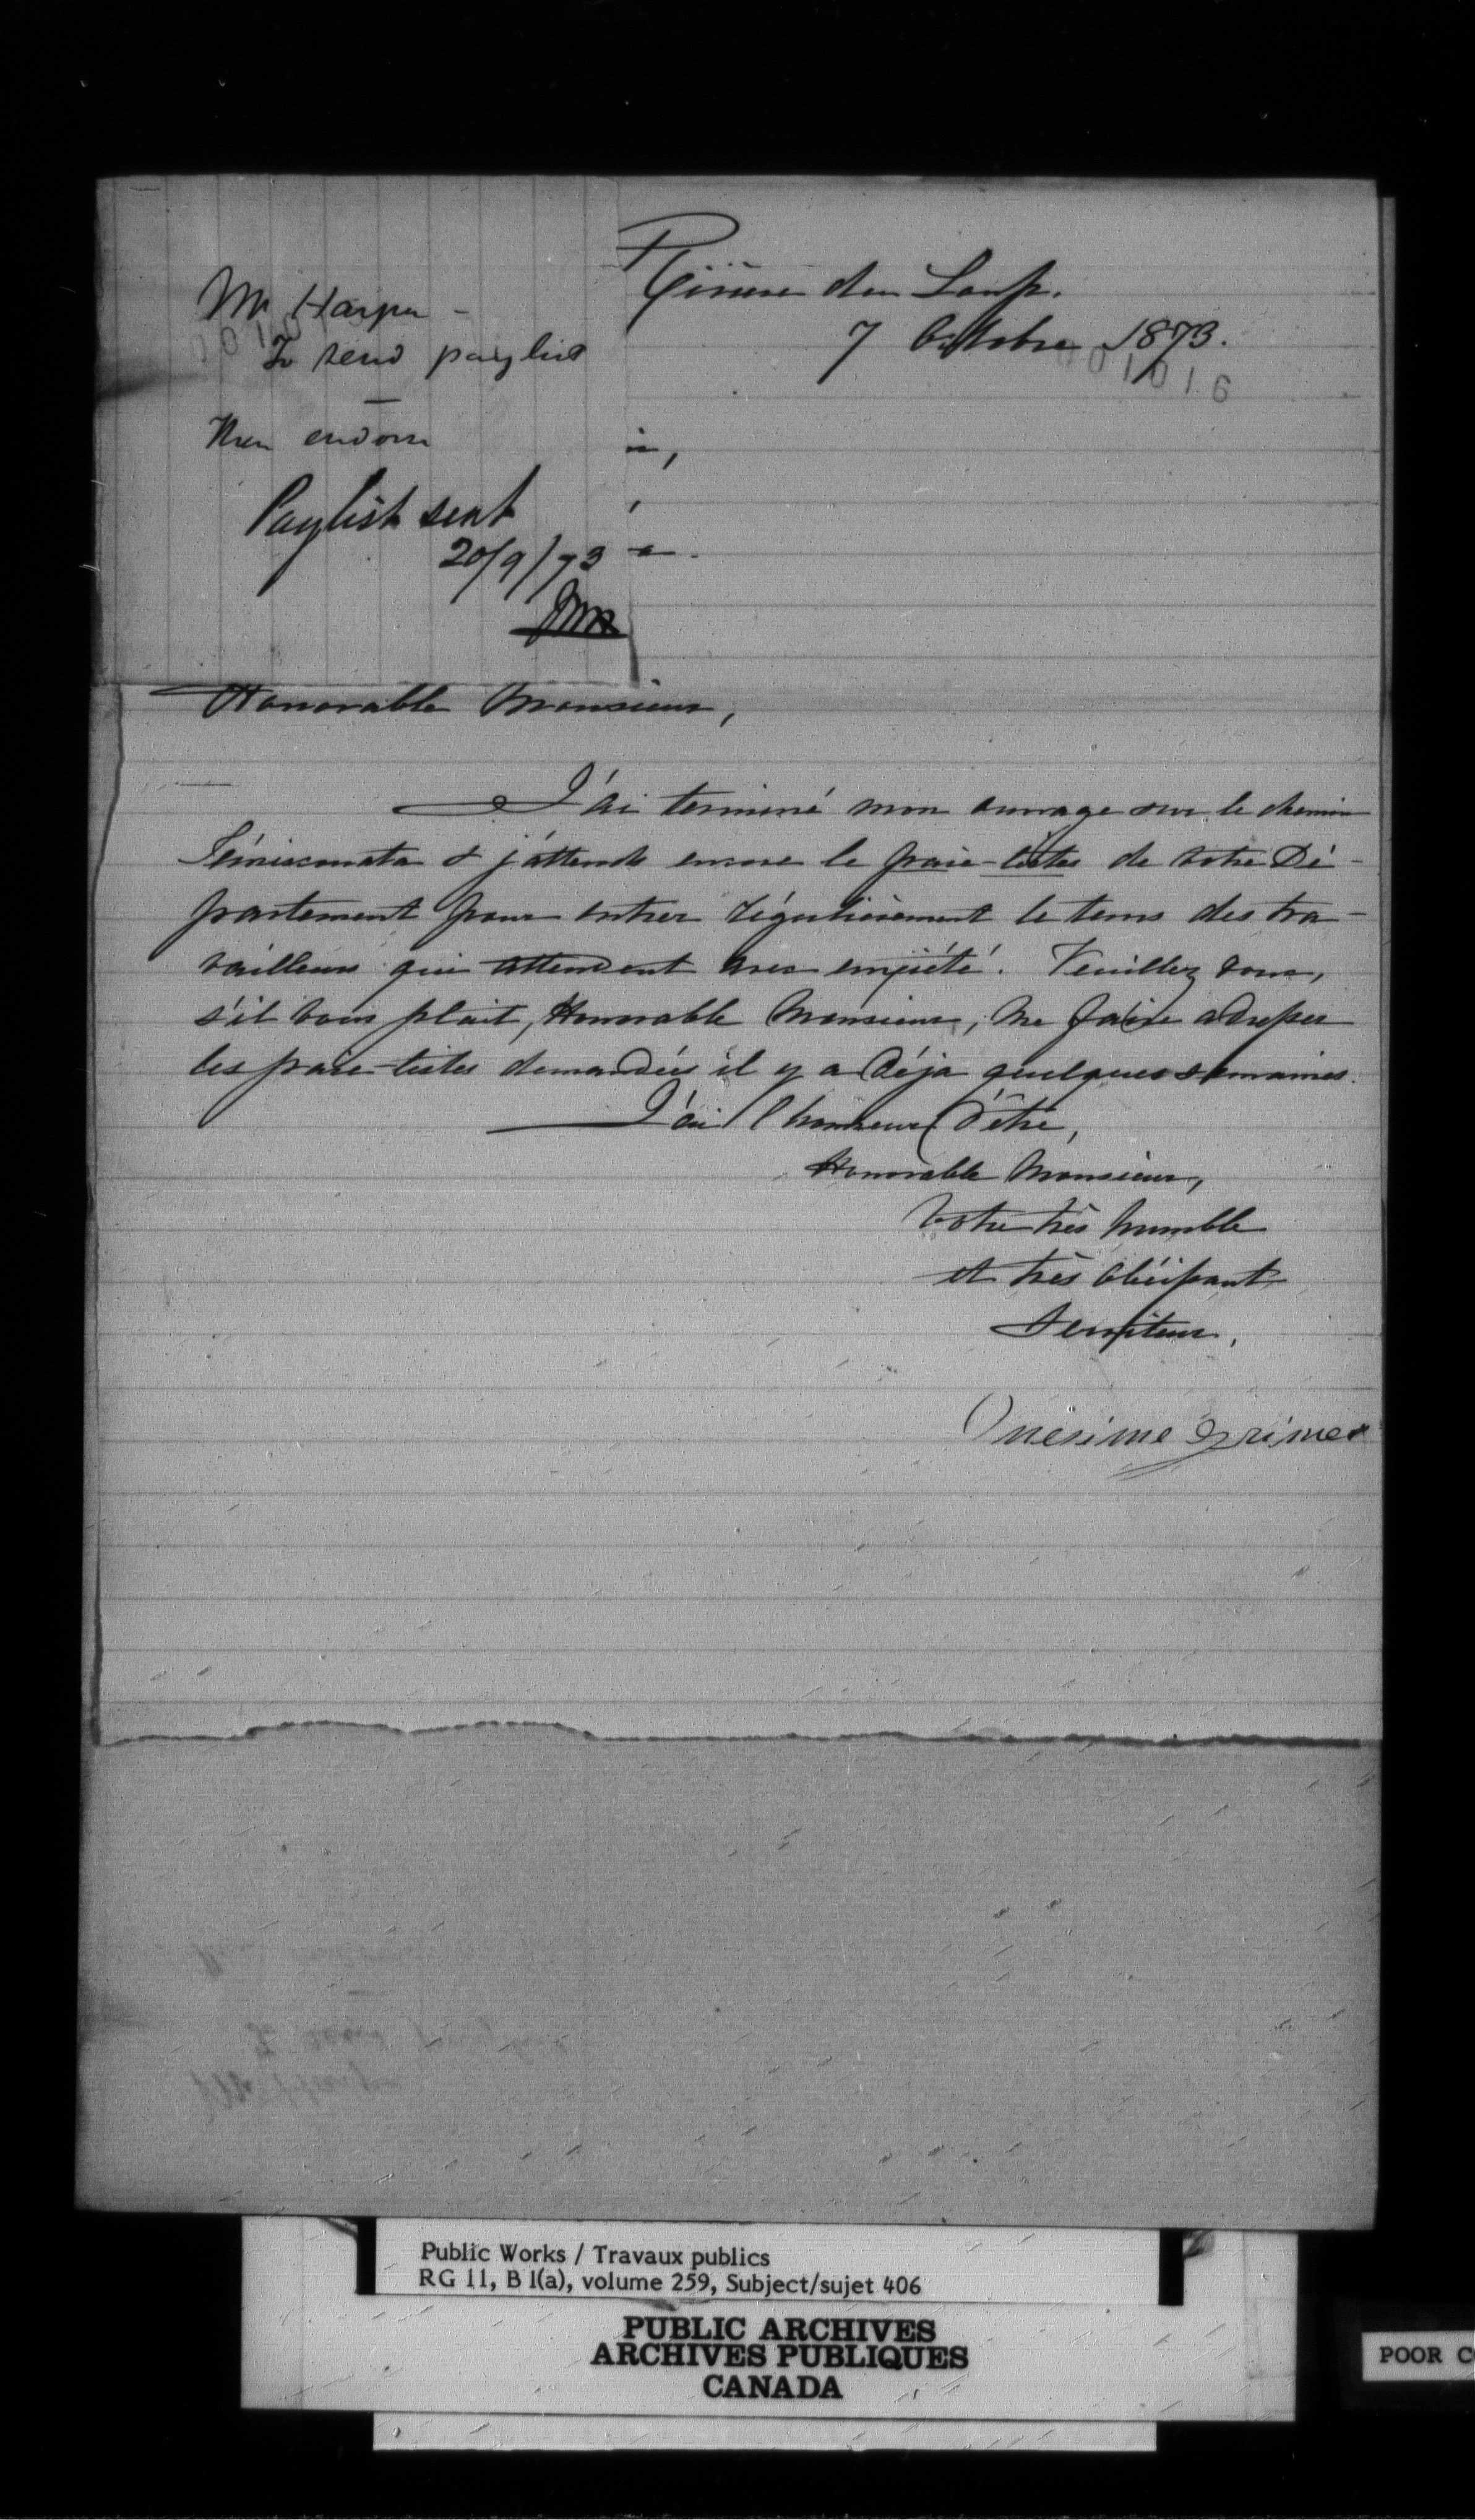 Mr Harper -
To send paylist
Then endorse
Paylist sent
20/9/73
Rivière du Loup.
7 Octobre 1873.
001016
Honorable Monsieur,
J'ai terminé mon ouvrage sur le chemin
Témiscouata & j'attends encore le paie-listes de votre Dé-
partement pour entrer régulièrement le tems des tra-
vailleurs qui attendent avec enquiété. Veuillez donc,
s'il vous plait, Honorable Monsieur, me faire adresser
les paie-listes demandées il y a déja quelques semaines.
J'ai l'honneur d'être,
Honorable Monsieur,
Votre très humble
et très obéissant
Serviteur,
Onésime
Public Works / Travaux publics
RG 11, B 1(a), volume 259, Subject/sujet 406
PUBLIC ARCHIVES
ARCHIVES PUBLIQUES
CANADA
POOR